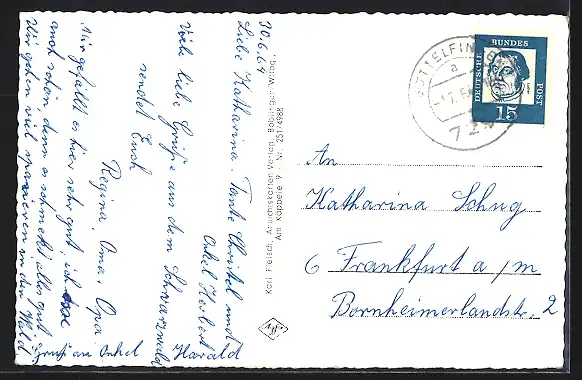 30.6.64
Liebe Katharina, Tante Christel und
Onkel Herbert
Viele liebe Grüße aus dem Schwarzwald
sendet Euch
Regina, Oma, Opa
Mir gefällt es hier sehr gut, ich
auch schön, denn es schmeckt alles gut.
Wir gehen viel spazieren in den Wald.
Gruß an Onkel Harald
Karl Fleisch, Ansichtskarten-Verlag, Böblingen-Verlag,
Am Käppele 9 Nr. 251/4988
DEUTSCHE BUNDES POST
15
a
An
Katharina Schug
6 Frankfurt a/m
Bornheimerlandstr. 2